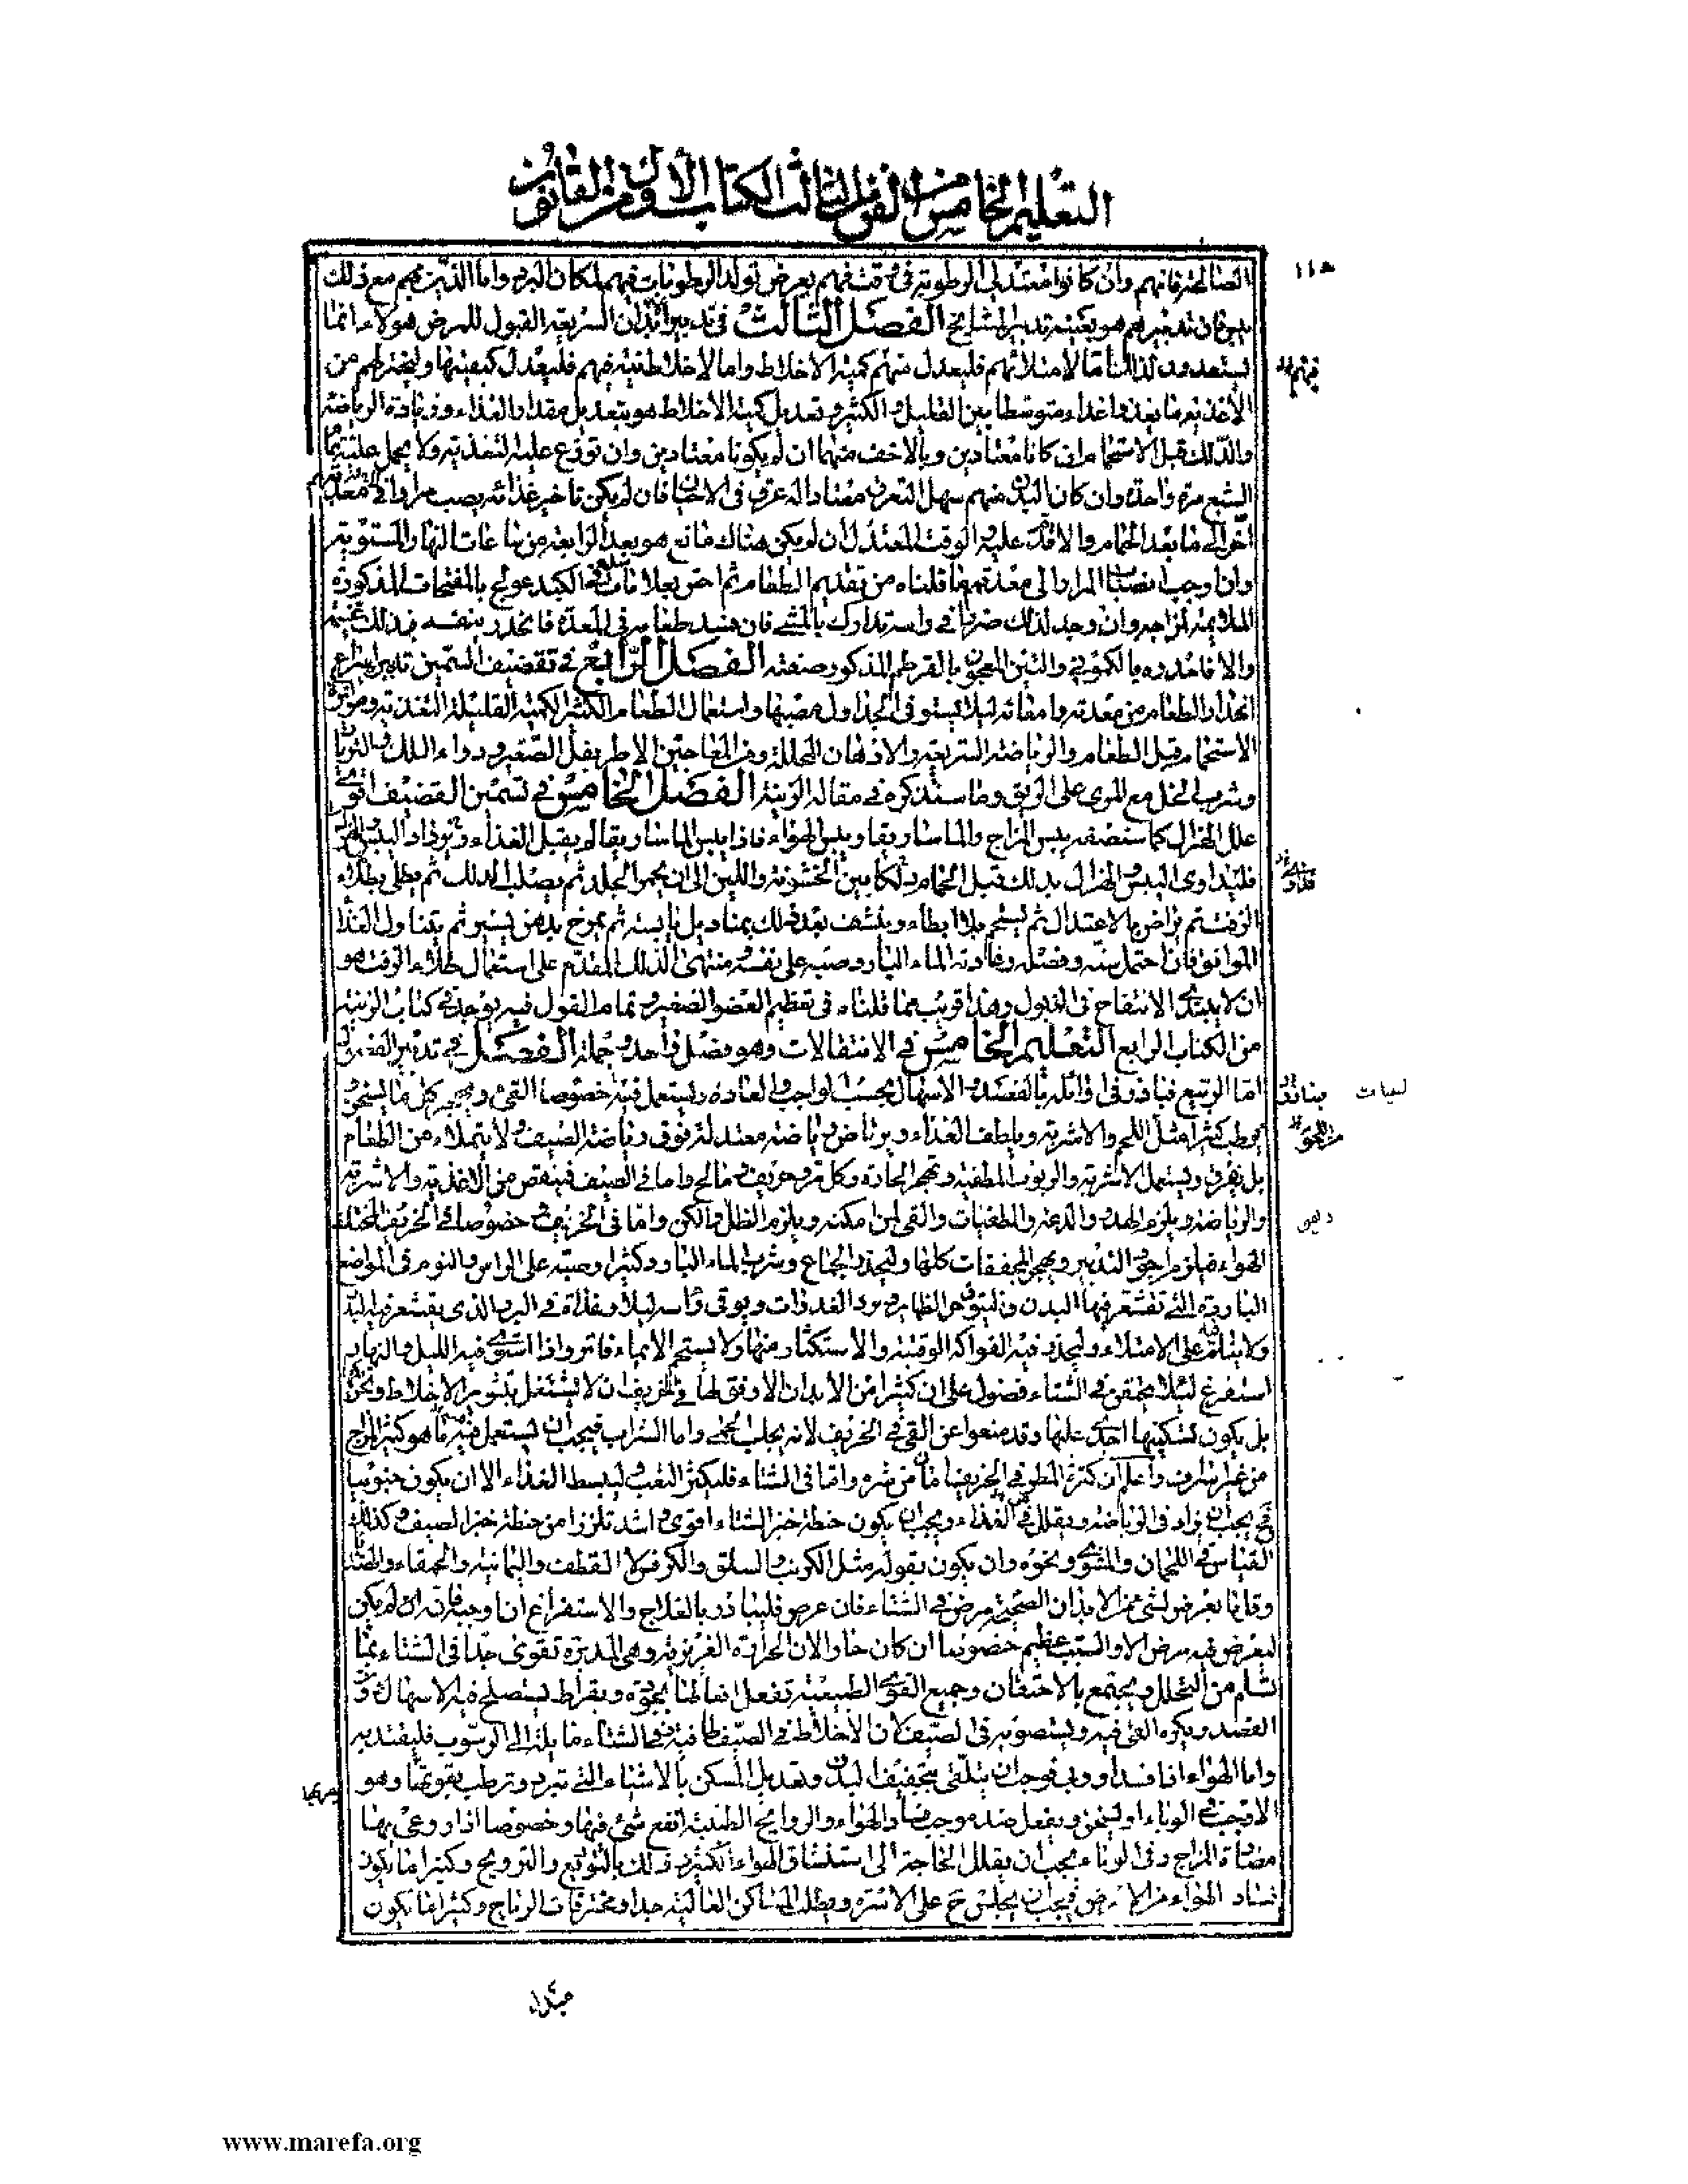 التعليم الخامس من الفن الثالث الكتاب الأول من القانون
١١٥
وان كانوا معتدلي الرطوبة في وقت فهم يعرض تولد الرطوبات فيهم لمكان البرد واما الذين هم مع ذلك
فان تدبيرهم هو بعينه تدبير المشايخ الفصل الثالث في تدبير الأبدان السريعة القبول للمرض هولاء انما
يستعدون لذلك اما لامتلائهم فليعدل منهم كمية الاخلاط واما لاخلاط نية فيهم فليعدل كيفيتها وليختر لهم من
فيهم
الأغذية ما يغذو غذاء متوسطا بين القليل والكثير وتعديل كمية الاخلاط هو بتعديل مقدار الغذاء وزيادة الرياضة
والدلك قبل الاستحمام ان كانا معتادين وبالاخف منهما ان لم يكونا معتادين وان توزع عليه التغذية ولا يحمل عليه
الشبع مرة واحدة وان كان البدن منهم سهل التعرق معتادا له عرق في الاحيان فان لم يكن تأخير غذائه يصب مرارا الى معدتهم
أخر الى ما بعد الحمام والا قدم عليه والوقت المعتدل ان لم يكن هناك مانع هو بعد الرابعة من ساعات النهار المستوية
وان اوجب انصباب المرار الى معدتهم ما قلناه من تقديم الطعام ثم احس بعلامات سدد في الكبد عولج بالمفتحات المذكورة
الملايمة لمزاجه وان وجد لذلك ضررا في راسه تدارك بالمشي فان فسد طعامه في المعدة فانحدر بنفسه فذلك غنيمة
والا فاحدره بالكموني والتين المعجون بالقرطم المذكور صفته الفصل الرابع في تقضيف السمين تدبيره اسراع
انحدار الطعام من معدته وامعائه ليلا يستوفي الجداول مصها واستعمال الطعام الكثير الكمية القليل التغذية ومواترة
الاستحمام قبل الطعام والرياضة السريعة والادهان المحللة ومن المعاجين الاطريفل الصغير ودواء اللك والترياق
وشرب الخل مع المري على الريق وما سنذكره في مقالة الزينة الفصل الخامس في تسمين القضيف اقوى
علل الهزال كما سنصفه يبس المزاج والماساريقا ويبس الهواء فاذا يبس الماساريقا لم يقبل الغذاء
فليداوى اليبس والهزال بدلك قبل الحمام دلكا بين الخشونة واللين الى ان يحمر الجلد ثم يصلب الدلك ثم يطلى بطلاء
الزفت ثم تراض بالاعتدال ثم يستحم بلا ابطاء وينشف بعد ذلك بمناديل يابسة ثم يمرخ بدهن يسير ثم يتناول الغذاء
الموافق فان احتمل سنه وفصله وعادته الماء البارد وصبه على نفسه ومنتهى الدلك المقدم على استعمال طلاء الزفت هو
ان لا يبتدئ الانتفاخ في الذبول وهذا قريب مما قلناه في تعظيم العضو الصغير وتمام القول فيه يوجد في كتاب الزينة
من الكتاب الرابع التعليم الخامس في الانتقالات وهو فصل واحد وجملة الفصل في تدبير الفصول
اما الربيع فيبادر في اوائله بالفصد والاسهال بحسب الواجب والعادة ويستعمل فيه خصوصا القئ ويهجر كل ما يسخن
ويرطب كثيرا مثل اللحم والاشربة ويلطف الغذاء ويرتاض رياضة معتدلة فوق رياضة الصيف ولا يتملاء من الطعام
بل يفرق ويستعمل الاشربة والربوب المطفية ويهجر الحارة وكل مر وحريف ومالح واما في الصيف فينقص من الاغذية والاشربة
والرياضة ويلزم الهدو والدعة والمطفيات والقئ لمن امكنه ويلزم الظل والكن واما في الخريف خصوصا في الخريف المختلف
الهواء فيلزم اجود التدبير ويهجر المجففات كلها وليحذر الجماع وشرب الماء البارد كثيرا وصبه على الراس والنوم في المواضع
الباردة التي تقشعر فيها البدن وليتوق حر الظهاير وبرد الغدوات ويوقي راسه ليلا وغداة من البرد الذي يقشعر فيه البدن
ولا ينام على الامتلاء وليحذر فيه الفواكه الوقتية والاستكثار منها ولا يستحم الا بماء فاتر واذا استوى فيه الليل والنهار
استفرغ لئلا يحتقن في الشتاء فضول على ان كثيرا من الابدان الاوفق لها في الخريف ان لا تشتغل بتثوير الاخلاط
بل يكون تسكينها اجدى عليها وقد منعوا عن القئ في الخريف لانه يجلب الحمى واما الشراب فيجب ان يستعمل فيه ما هو كثير المزاج
من غير اسراف واعلم ان كثرة المطر في الخريف امان من شره واما في الشتاء فليكثر التعب وليبسط الغذاء الا ان يكون جنوبيا
فح يجب ان يزاد في الرياضة ويقلل من الغذاء ويجب ان يكون حنطة خبز الشتاء اقوى واشد تلززا من حنطة خبز الصيف وكذلك
القياس في اللحمان والمشوي ونحوه وان يكون بقوله مثل الكرنب والسلق والكرفس لا القطف واليمانية والحمقاء والهندباء
وقلما يعرض لشئ من الابدان الصحيحة مرض في الشتاء فان عرض فليبادر بالعلاج والاستفراغ ان اوجبه فانه لم يكن
ليعرض فيه مرض الا والسبب عظيم خصوصا ان كان حارا لان الحرارة الغريزية وهي المدبرة تقوى جدا في الشتاء بما
تسلم من التحلل ويجتمع بالاحتقان وجميع القوى الطبيعية تفعل افعالها بجودة وبقراط يستصلح فيه الاسهال دون
الفصد ويكره القئ فيه ويستصوبه في الصيف لان الاخلاط في الصيف طافية وفي الشتاء مايلة الى الرسوب فليقتد به
واما الهواء اذا فسد او وبي فيجب ان يتلقى بتجفيف البدن وتعديل المسكن بالاشياء التي تبرد وترطب بقوتها وهو
الاوجب في الوباء او تسخن ويفعل ضد موجب فساد الهواء والروايح الطيبة انفع شئ فيها وخصوصا اذا روعي بها
مضادة المزاج وفي الوباء يجب ان يقلل الحاجة الى استنشاق الهواء الكثير وذلك بالتوديع والترويح وكثيرا ما يكون
فساد الهواء من الارض فيجب ان يجلس ح على الاسرة ويطلب المساكن العالية جدا ومخترقات الرياح وكثيرا ما يكون
مبداء
www.marefa.org